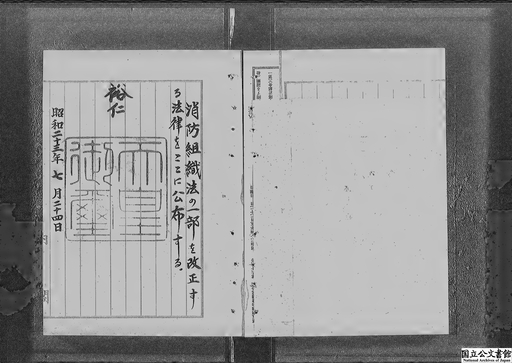 消防組織法の一部を改正す
る法律をここに公布する。
裕仁
天皇
御璽
昭和二十三年七月二十四日
国立公文書館
National Archives of Japan